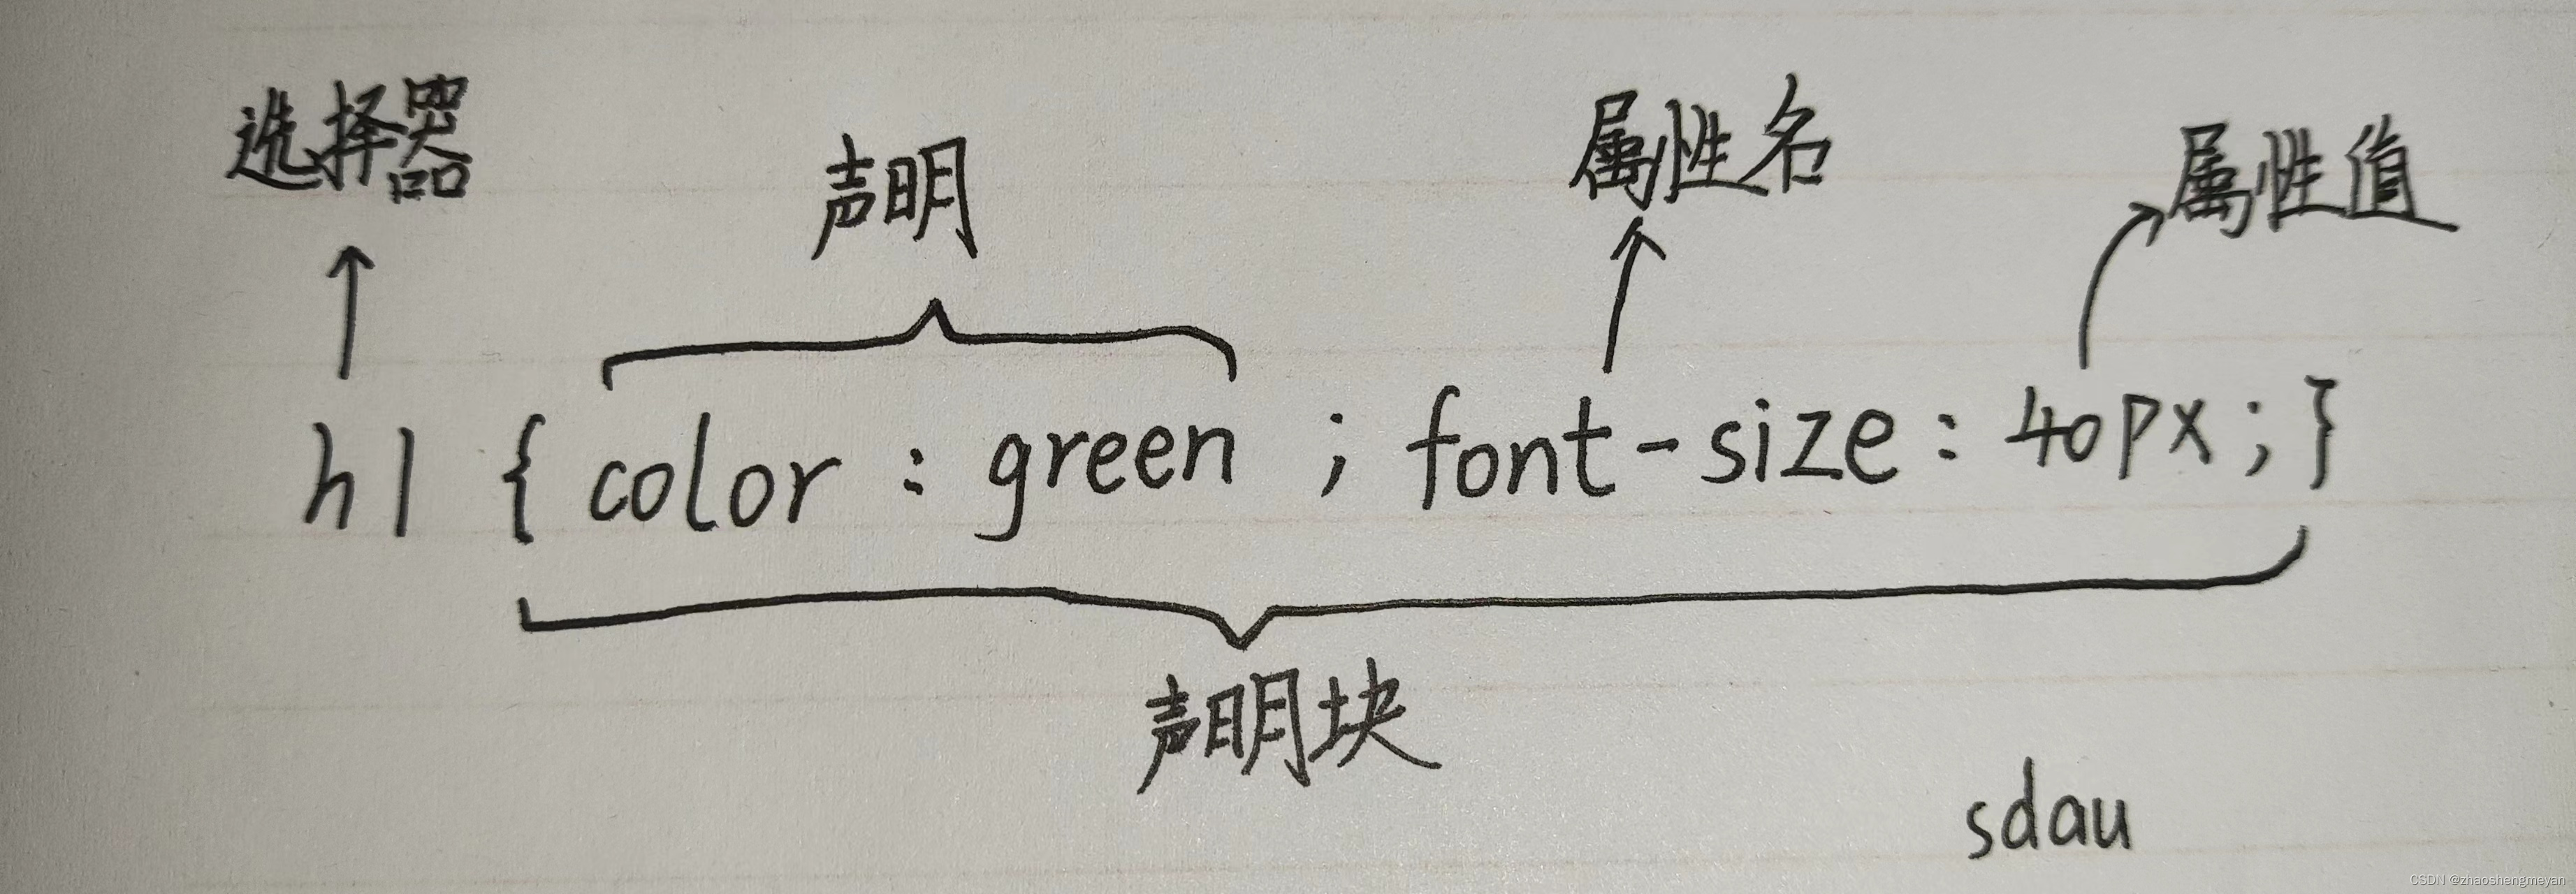 选择器
声明
属性名
属性值
h1 { color : green ; font-size : 40px ; }
声明块
sdau
CSDN @zhaoshengmeyan